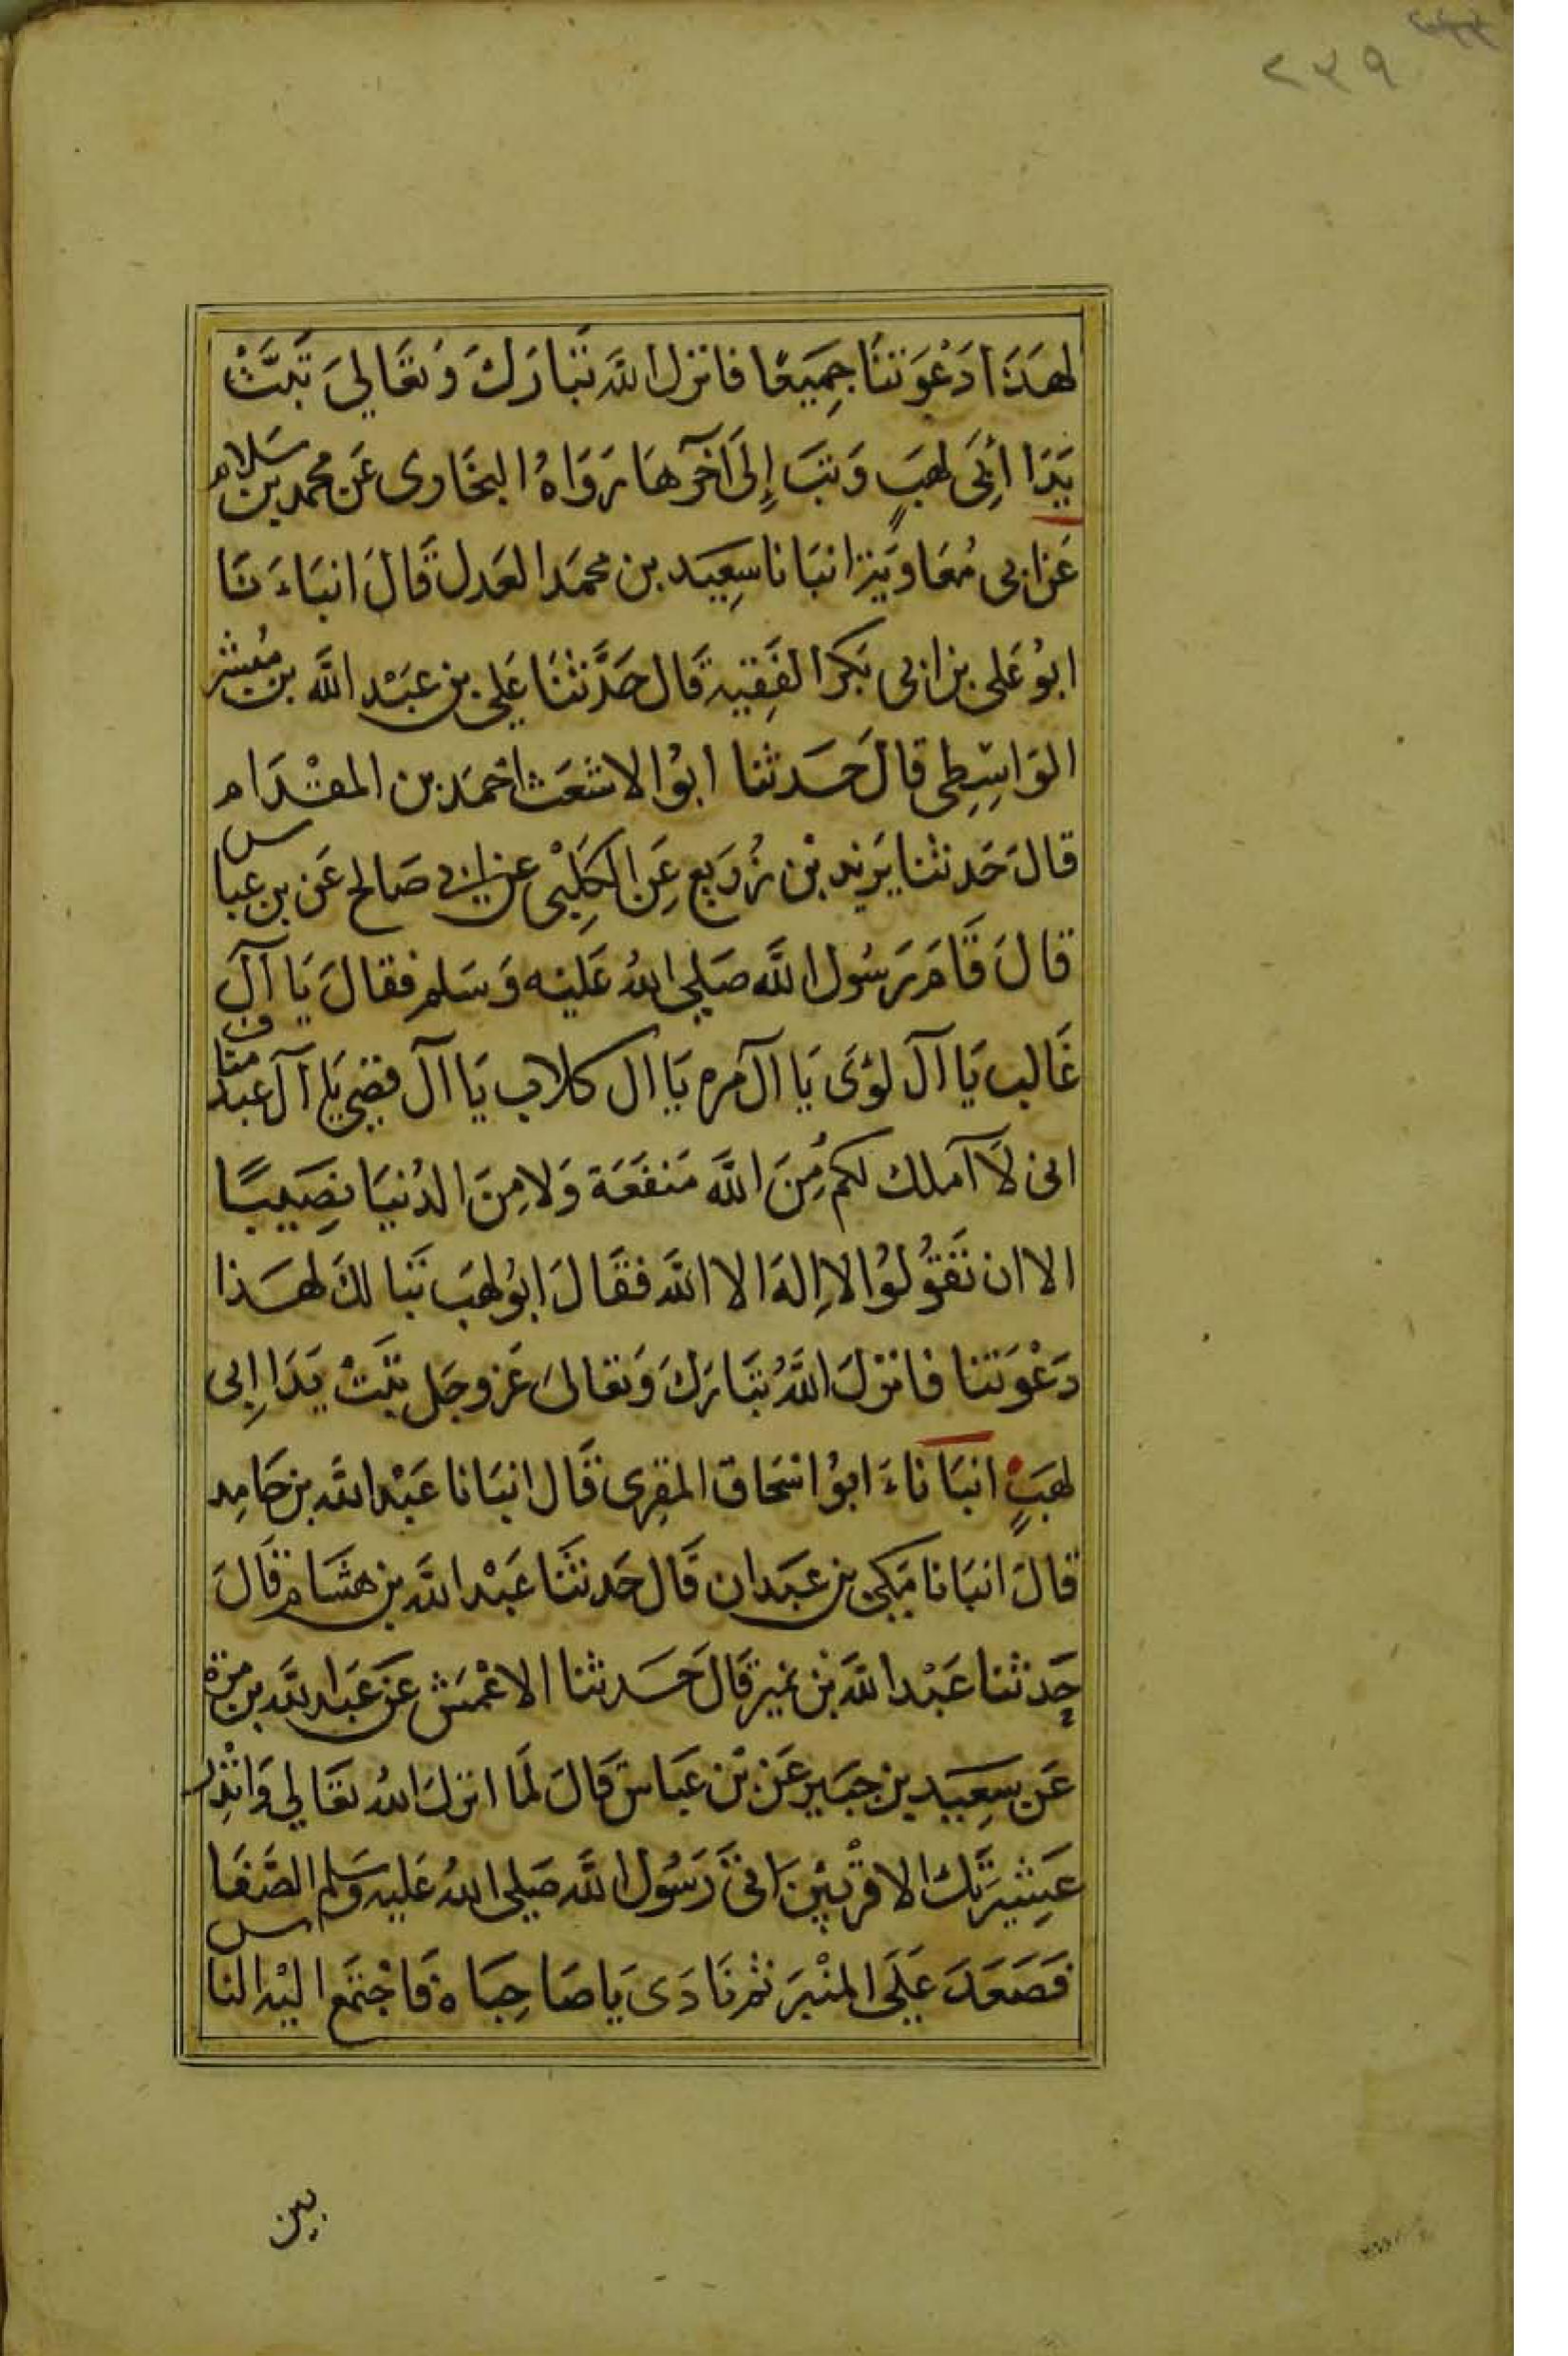 ٢٣٩
لهَذَا دَعْوَتنَا جمِيَعًا فانزل اللّه تبَارَكَ وَتعَالىَ تَبَّتْ
يَدَا أبى لهَبٍ وَتبَ إِلىَ آخرهَا رَوَاهُ البخَاوى عَن محمد بن سَلام
عَن ابى مُعَاوَية انبَانا سِعيَد بن محمدَ العَدل قَالَ انبَاءَ نَا
ابوُ عَلى بن ابى بَكر الفَقِيه قَال حَدَّثنَا عَلِى بن عَبْد اللَّه بن مُبشر
الوَاسِطِى قالَ حَدثنا ابوُ الاشعَث احمَد بن المقدَام
قالَ حَدثنا يَزيد بْن زُرَيع عَنِ الكَلِبْى عن ابى صَالح عَن بن عبَاس
قالَ قَامَ رَسُول اللَّه صَلى اللهُ عَليْه وَسَلم فقالَ يَا آلَ
غَالب يَا آلَ لؤىَ يَا آل مره يَا ال كلاب يَا آل قصى يَا آل عبد مناف
انى لَا آملك لكم مِنَ اللَّه مَنفعَة وَلا مِنَ الدُنيَا نصِيَبًا
الا ان تَقوُلوُا لا اِلهَ الا اللَّه فقَالَ ابوُ لهَب تَبا لكَ لهَذا
دَعْوَتنا فانزلَ اللَّهُ تبَارَكَ وَتعالىَ عَز وجَل تبَّتْ يَدَا اِبى
لهَبٍ انبَاناءَ ابوُ اسْحَاق المقرى قَال انبَانا عَبْد اللَّه بن حَامِد
قالَ انبَانا مَكى بن عبَدان قَال حَدثنَا عَبْد اللَّه بن هشَام قَالَ
حَدثنا عَبْد اللَّه بْن نمير قَالَ حَدثنا الاعْمَش عَن عَبَد اللَّه بن مرة
عَن سِعَيد بن جبَير عَن بْن عَبَاس قَالَ لمَا انزلَ اللهُ تعَالى وَانْذِر
عَشِيرَتَكَ الاقرْبِيَن اتىَ رَسُول اللَّه صَلى اللهُ عَليه وسَلم الصَّفَا
فصَعَدَ عَلىَ المنْبَر ثم نَادَى يَا صَاحِبَاه فَاجْتمَع اليْه الناس
بين